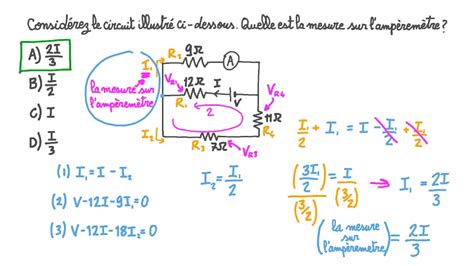 Considérez le circuit illustré ci-dessous. Quelle est la mesure sur l'ampèremètre?
A) 2I/3
B) I/2
C) I
D) I/3
la mesure sur l'ampèremètre
I₁
R₂
9Ω
A
V_R1
12Ω
I
R₁
2
V
V_R4
11Ω
R₄
I₂
R₃
7Ω
V_R3
(1) I₁ = I - I₂
(2) V-12I-9I₁=0
(3) V-12I-18I₂=0
I₂ = I₁/2
I₁/2 + I₁ = I - I₁/2 + I₁/2
(3I₁/2)/(3/2) = I/(3/2) → I₁ = 2I/3
(la mesure sur l'ampèremètre) = 2I/3